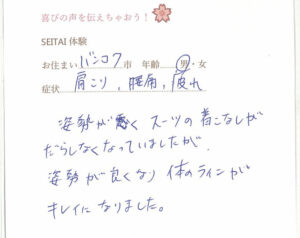 喜びの声を伝えちゃおう！
SEITAI 体験
お住まい バンコク 市 年齢 男・女
症状 肩こり、腰痛、疲れ
姿勢が悪く スーツの着こなしが
だらしなくなっていましたが、
姿勢が良くなり 体のラインが
キレイになりました。